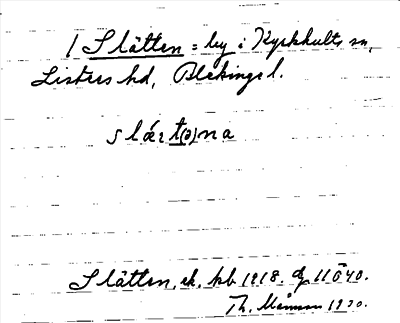 / Slätten = by i Kyrkhults sn,
Listers hd, Blekinge l.
slǽɿt(ə)na
Slätten, ek. kb. 1918. 11ö40.
Th. 1930.